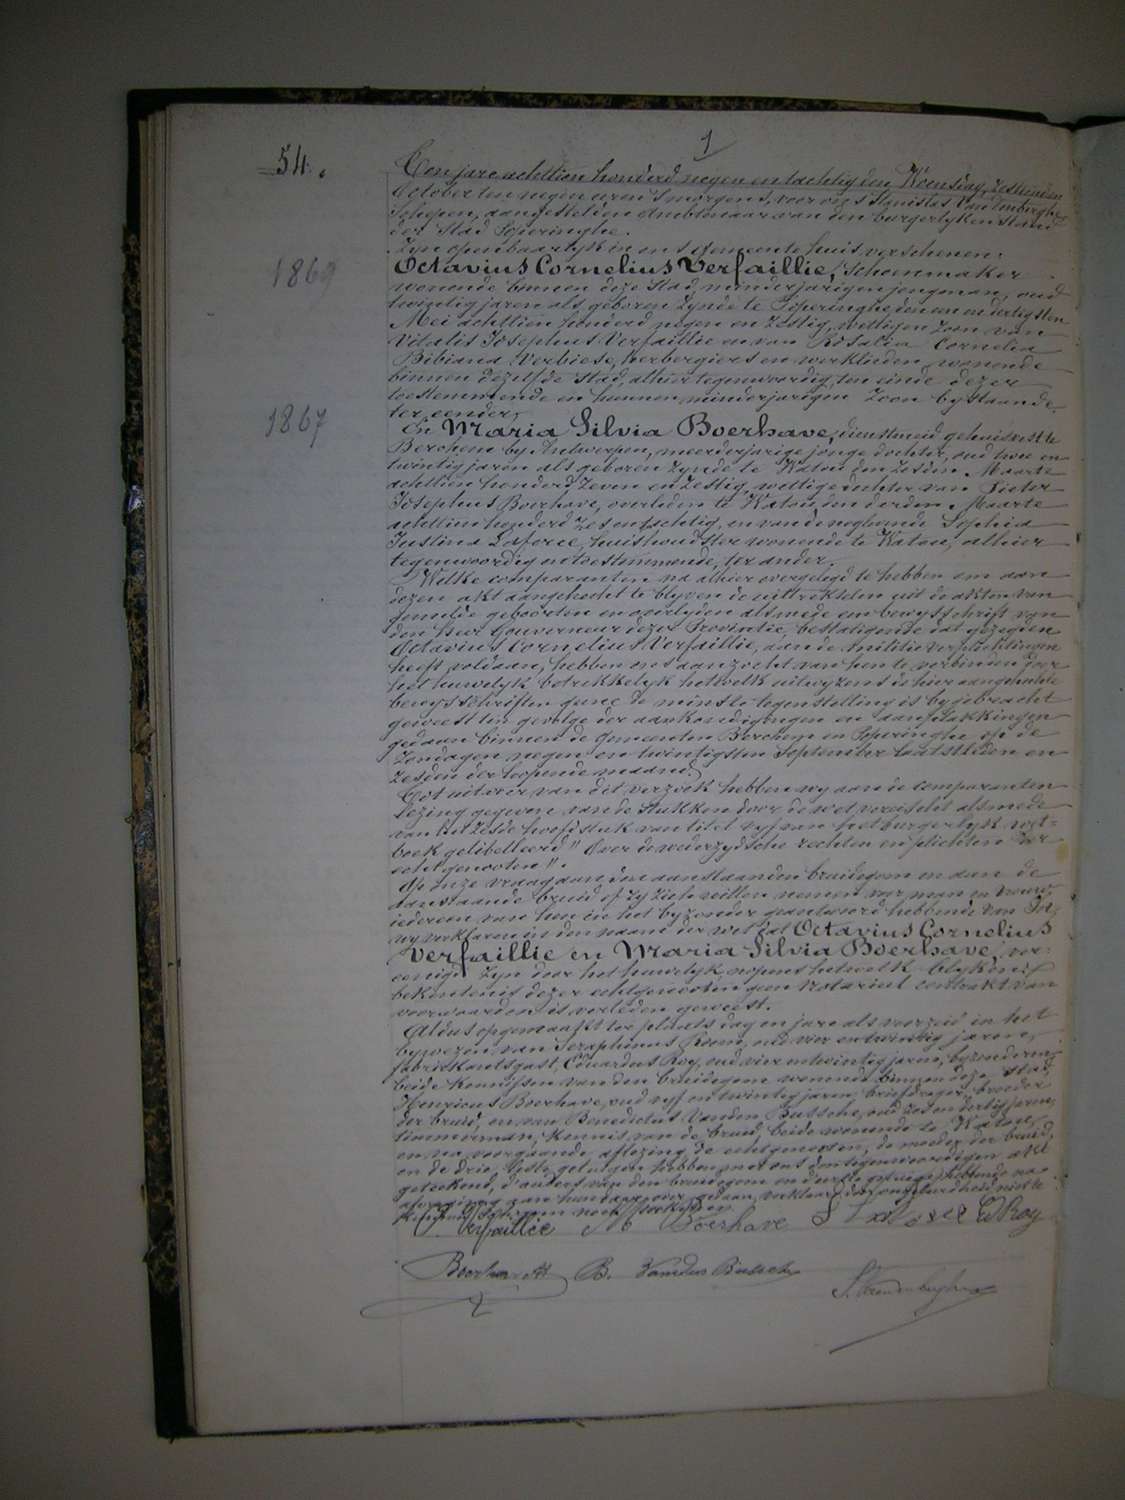 1
54.
Ten jare achttien honderd negen en tachtig den Woensdag, zestienden
October ten negen uren 's morgens, voor ons Stanislas Vandenberghe
Schepen, aangestelden Ambtenaar van den burgerlyken stand
der Stad Poperinghe.
Zyn openbaarlyk in ons gemeentehuis verschenen:
1869
Octavius Cornelius Verfaillie, Schoenmaker
wonende binnen deze Stad, minderjarigen jongman, oud
twintig jaren als geboren zynde te Poperinghe, den een en dertigsten
Mei achttien honderd negen en zestig, wettigen zoon van
Vitalis Josephus Verfaillie en van Rosalia Cornelia
Bibiana Verbiese, herbergiers en werklieden, wonende
binnen dezelfde Stad, alhier tegenwoordig, ten einde dezer
toestemmende en hunnen minderjarigen zoon bystaande,
ter eender,
1867
En Maria Silvia Boerhave, dienstmeid gehuisvest te
Berchem by Antwerpen, meerderjarige jonge dochter, oud twee en
twintig jaren als geboren zynde te Watou den zesden Maarte
achttien honderd zeven en zestig, wettige dochter van Pieter
Josephus Boerhave, overleden te Watou den derden Maarte
achttien honderd zes en tachtig, en van de nog levende Sophia
Justina Laforce, huishoudster wonende te Watou, alhier
tegenwoordig en toestemmende, ter ander.
Welke comparanten na alhier overgelegd te hebben om aan
dezen akt aangehecht te blyven de uittrekselen uit de akten van
gemelde geboorten en overlyden alsmede een bewysschrift van
den heer Gouverneur dezer Provintie, bestatigende dat gezegden
Octavius Cornelius Verfaillie, aan de militie verplichtingen
heeft voldaan, hebben ons aanzocht van hen te verbinden door
het huwelyk betrekkelyk hetwelk uitwyzens de hier aangehechte
bewysschriften geene de minste tegenstelling is bygebracht
geweest ten gevolge der aankondigingen en aanplakkingen
gedaan binnen de gemeenten Berchem en Poperinghe op de
Zondagen negen en twintigsten September laatstleden en
zesden der loopende maand.
Tot uitvoer van dit verzoek hebben wy aan de comparanten
lezing gegeven van de stukken door de wet vereischt alsmede
van het zesde hoofdstuk van titel vyf van het burgerlyk wet=
boek gelibelleerd "Over de wederzydsche rechten en plichten der
echtgenooten".
Op onze vraag aan den aanstaanden bruidegom en aan de
aanstaande bruid of zy zich willen nemen voor man en vrouw
iedereen van hen in het byzonder geantwoord hebbende van Ja,
wy verklaren in den naam der wet dat Octavius Cornelius
Verfaillie en Maria Silvia Boerhave, ver=
eenigd zyn door het huwelyk nopens hetwelk blykens
bekentenis dezer echtgenooten geen notarieel contrakt van
voorwaarden is verleden geweest.
Aldus opgemaakt ter plaats dag en jare als voorzeid in het
bywezen van Seraphinus Room, oud vier en twintig jaren,
fabriekantsgast, Eduardus Roy, oud vier en twintig jaren, byzonderen
beide kennissen van den bruidegom wonende binnen deze Stad,
Henricus Boerhave, oud vyf en twintig jaren, briefdrager, broeder
der bruid, en van Benedictus Vanden Bussche, oud zes en dertig jaren,
timmerman, kennis van de bruid beide wonende te Watou,
en na voorgaande aflezing de echtgenooten, de moeder der bruid,
en de drie getuigen hebben met ons den tegenwoordigen akt
geteekend, d'ouders van den bruidegom en d'eerste getuige hebbende na
afvraging aan hun daar over gedaan, verklaard door ongeleerdheid niet te
kunnen schryven noch teekenen.
Verfaillie M S Boerhave S Laforce E Roy
Boerhave H B. Vanden Bussche
S. Vandenberghe